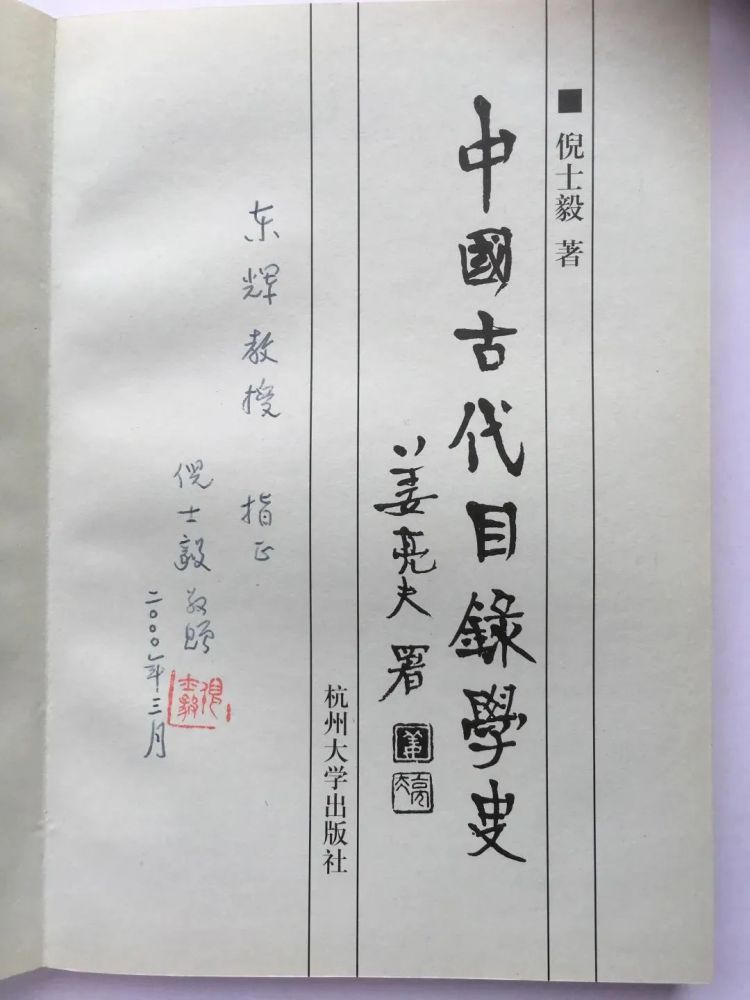 倪士毅 著
中國古代目錄學史
姜亮夫 署
杭州大学出版社
东辉教授 指正
倪士毅敬赠
二〇〇〇年三月